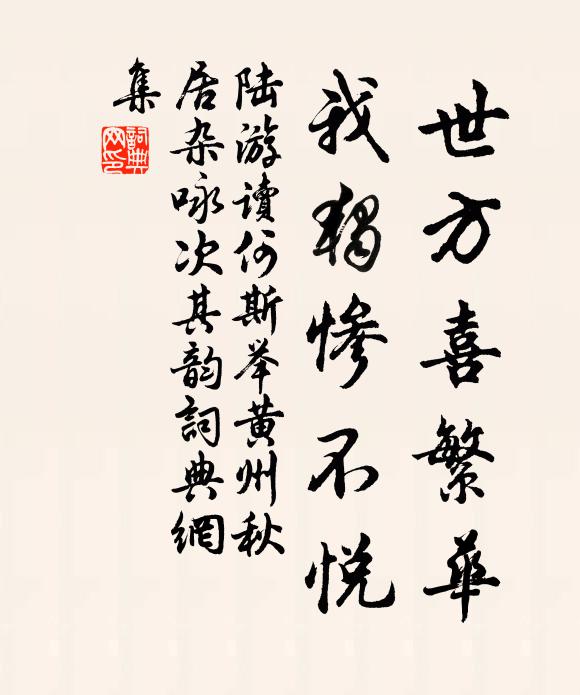 世方喜繁華
我獨慘不悅
陆游讀何斯举黄州秋
居杂咏次其韵詞典網
集
詞典
网印